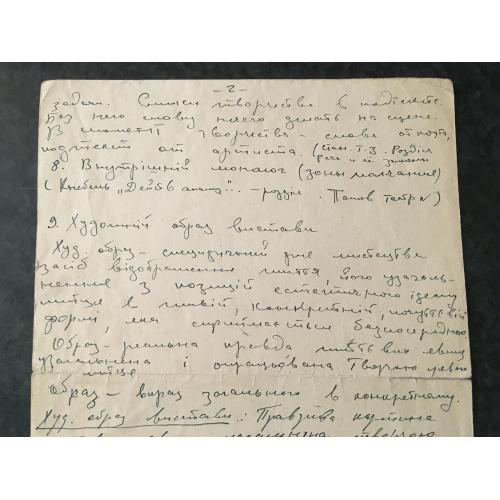 -2-
задач. Смысл творчества в подтексте.
Без него слову нечего делать на сцене.
В момент творчества - слова от поэта,
подтекст от артиста. (Стан. Т.3. Розділ
Речь и её законы
8. Внутрішній монолог (зоны молчания)
(Кнебель „ - розділ.
9. Художній образ вистави
Худ образ - специфічний для мистецтва
засіб відображення життя, його узагаль-
нення з позицій естетичного ідеалу
митця в живій, конкретній, чуттєвій
формі, яка сприймається безпосередньо
Образ - реальна правда життєвих явищ
узагальнена і опрацьована творчою уявою
митця
образ - вираз загального в конкретному.
Худ. образ вистави: Правдива картина
творчою